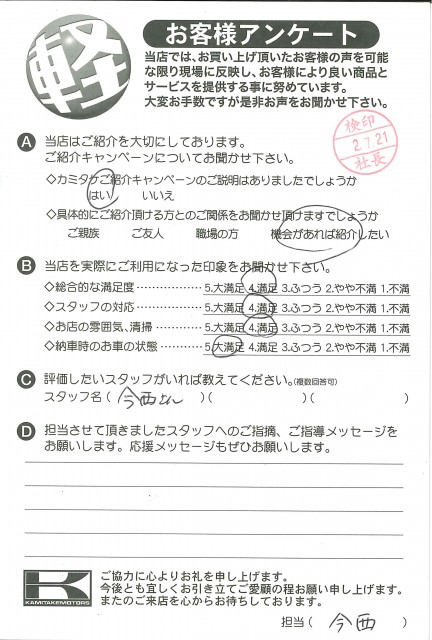 軽
お客様アンケート
当店では、お買い上げ頂いたお客様の声を可能
な限り現場に反映し、お客様により良い商品と
サービスを提供する事に努めています。
大変お手数ですが是非お声をお聞かせ下さい。
検印
2.7.21
社長
A 当店はご紹介を大切にしております。
ご紹介キャンペーンについてお聞かせ下さい。
◇カミタケご紹介キャンペーンのご説明はありましたでしょうか
はい いいえ
◇具体的にご紹介頂ける方とのご関係をお聞かせ頂けますでしょうか
ご親族 ご友人 職場の方 機会があれば紹介したい
B 当店を実際にご利用になった印象をお聞かせ下さい。
◇総合的な満足度……………5.大満足 4.満足 3.ふつう 2.やや不満 1.不満
◇スタッフの対応……………5.大満足 4.満足 3.ふつう 2.やや不満 1.不満
◇お店の雰囲気、清掃………5.大満足 4.満足 3.ふつう 2.やや不満 1.不満
◇納車時のお車の状態………5.大満足 4.満足 3.ふつう 2.やや不満 1.不満
C 評価したいスタッフがいれば教えてください。(複数回答可)
スタッフ名(今西さん)( )( )
D 担当させて頂きましたスタッフへのご指摘、ご指導メッセージを
お願いします。応援メッセージもぜひお願いします。
K
KAMITAKEMOTORS
ご協力に心よりお礼を申し上げます。
今後とも宜しくお引き立てご愛顧の程お願い申し上げます。
またのご来店を心からお待ちしております。
担当(今西)